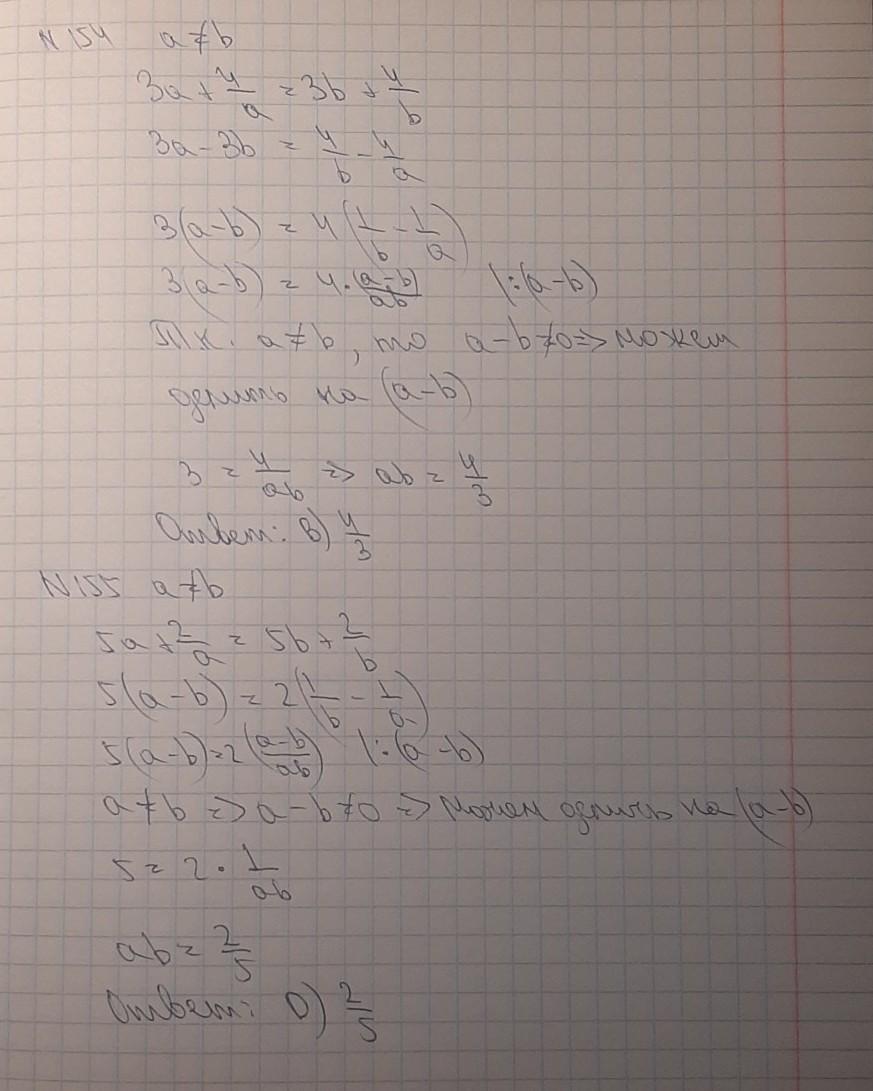 N 154 a≠b
3a + 4/a = 3b + 4/b
3a - 3b = 4/b - 4/a
3(a-b) = 4(1/b - 1/a)
3(a-b) = 4·(a-b)/ab |:(a-b)
Т.к. a≠b, то a-b≠0 => можем
делить на (a-b)
3 = 4/ab => ab = 4/3
Ответ: B) 4/3
N155 a≠b
5a + 2/a = 5b + 2/b
5(a-b) = 2(1/b - 1/a)
5(a-b) = 2((a-b)/ab) |:(a-b)
a≠b => a-b≠0 => можем делить на (a-b)
5 = 2 · 1/ab
ab = 2/5
Ответ: D) 2/5